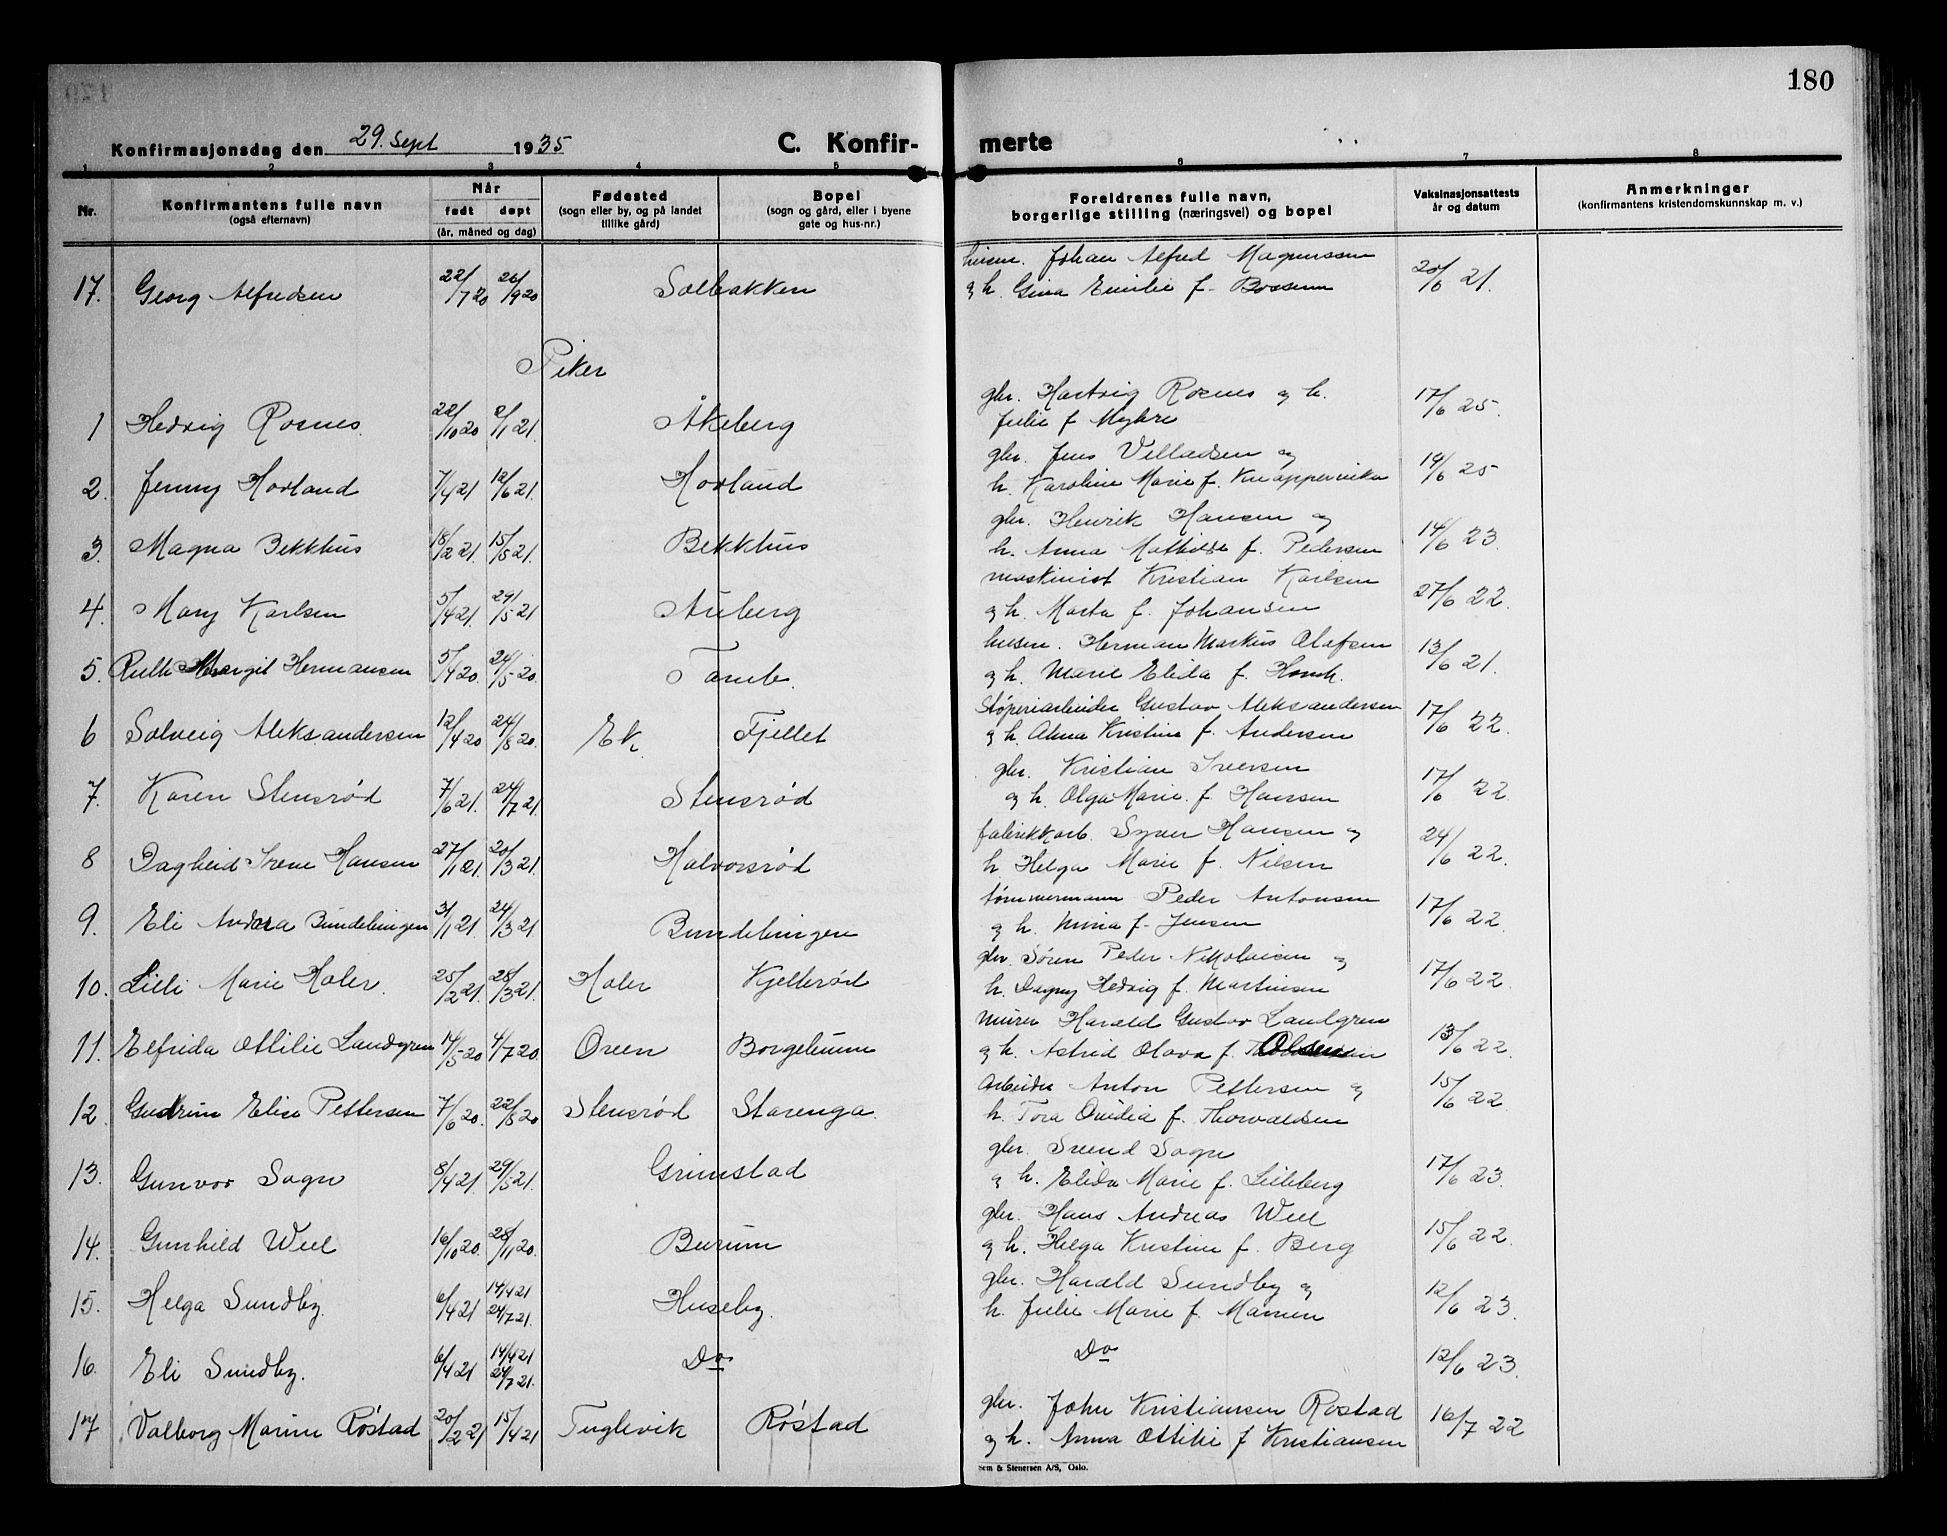 180
Konfirmasjonsdag den 29. Sept 1935
C. Konfirmerte
1 2 3 4 5 6 7 8
Nr.
Konfirmantens fulle navn
(også efternavn)
Når
født døpt
(år, måned og dag)
Fødested
(sogn eller by, og på landet
tillike gård)
Bopel
(sogn og gård, eller i byene
gate og hus-nr.)
Foreldrenes fulle navn,
borgerlige stilling (næringsvei) og bopel
Vaksinasjonsattests
år og datum
Anmerkninger
(konfirmantens kristendomskunnskap m. v.)
husm. Johan Alfred Magnussen
17. Georg Alfredsen 22/7 20 26/9 20 Solbakken
og h. Gina Emilie f. 20/6 21.
Piker
gbr. Hartvig Rosnes og h.
1 Hedvig Rosnes 22/10 20 2/1 21. Åkeberg
Julie f. Myhre 17/6 25.
gbr. Jens Villadsen og
2. Jenny Hovland 7/4 21 12/6 21. Hovland
h. Karoline Marie f. Knappervika 14/6 25
gbr. Henrik Hansen og
3. Magna Bekkhus 18/2 21. 15/5 21. Bekkhus
h. Anna Mathilde f. Pedersen 14/6 23.
maskinist Kristian Karlsen
4. Mary Karlsen 5/4 21. 29/5 21 Auberg
og h. Marta f. Johansen 27/6 22.
husm. Herman Markus Olafsen
5. Ruth Margit Hermansen 5/4 20. 24/5 20. Tomb.
og h. Marie Elida f. 13/6 21.
Støperiarbeider Gustav Aleksandersen
6 Solveig Aleksandersen 12/4 20 24/8 20. Ek. Fjellet
og h. Alma Kristine f. Andersen 17/6 22.
gbr. Kristian Iversen
7. Karen Stensrød 7/6 21. 24/7 21. Stensrød
og h. Olga Marie f. Hansen 17/6 22.
fabrikkarb. Syver Hansen og
8 Dagheid Irene Hansen 27/1 21. 20/3 21. Halvorsrød
h. Helga Marie f. Nilsen 24/6 22.
tømmermann Peder Antonsen
9. Eli Andrea Bundebingen 31/1 21. 24/3 21. Bundebingen
og h. Mina f. Jensen 17/6 22.
gbr. Søren Peder Nikolaisen og
10. Lilli Marie Holer. 25/2 21. 28/3 21. Holer Kjellerød
h. Dagny Hedvig f. Martinsen 17/6 22.
murer Harald Gustav Landgren
11. Elfrida Ottilie Landgren 14/5 20 4/7 20. Oreen
og h. Astrid Olava f. 13/6 22.
Arbeider Anton Pettersen og
12. Gudrun Elise Pettersen 7/6 20. 22/8 20 Stensrød Starenga.
h. Tora Ovidia f. Thorvaldsen 15/6 22
gbr. Svend Sogn
13. Gunvor Sogn 8/4 21. 29/5 21. Grimstad
og h. Elida Marie f. Lilleberg 17/6 23.
gbr. Hans Andreas Weel
14. Gunhild Weel 16/10 20. 28/11 20. Burum
og h. Helga Kristine f. Berg 15/6 22.
gbr. Harald Sundby og
15. Helga Sundby. 6/4 21 14/4 21 24/7 21. Huseby.
h. Julie Marie f. 12/6 23.
16. Eli Sundby. 6/4 21 14/4 21 24/7 21. Do Do 12/6 23.
gbr. John Kristiansen Rostad
17 Valborg Marine Røstad 20/2 21 15/4 21 Tuglevik Røstad
og h. Anna Ottilie f Kristiansen 16/7 22
Sem & Stenersen A/S, Oslo.